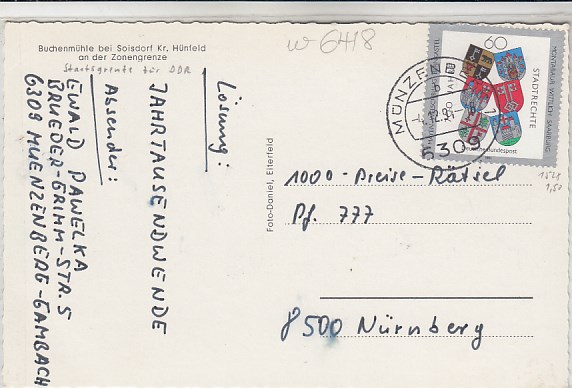 Buchenmühle bei Soisdorf Kr. Hünfeld
an der Zonengrenze
Staatsgrenze zur DDR
w 6418
Lösung:
JAHRTAUSENDWENDE
Absender:
EWALD PAWELKA
BRUEDER-GRIMM-STR. 5
6309 MUENZENBERG-GAMBACH
Foto-Daniel, Eiterfeld
60
STADTRECHTE
MONTABAUR WITTLICH SAARBURG
Deutsche Bundespost
MÜNZENBE
6309
1000-Preise-Rätsel
Pf. 777
8500 Nürnberg
1,50